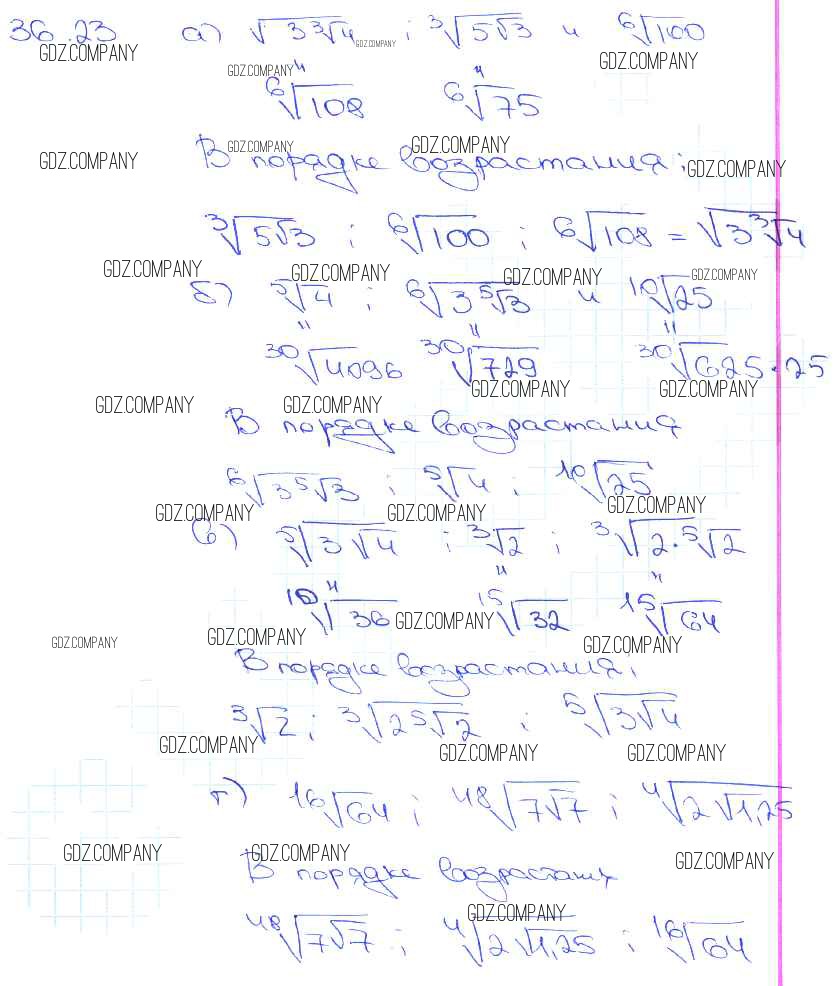 36.23 а) √(3∛4) ; ∛(5√3) и ⁶√100
GDZ.COMPANY GDZ.COMPANY GDZ.COMPANY
GDZ.COMPANY
" "
⁶√108 ⁶√75
GDZ.COMPANY GDZ.COMPANY GDZ.COMPANY GDZ.COMPANY
В порядке возрастания;
∛(5√3) ; ⁶√100 ; ⁶√108 = √(3∛4)
GDZ.COMPANY GDZ.COMPANY GDZ.COMPANY GDZ.COMPANY
б) ⁵√4 ; ⁶√(3⁵√3) и ¹⁰√25
" " "
³⁰√4096 ³⁰√729 ³⁰√625·25
GDZ.COMPANY GDZ.COMPANY
GDZ.COMPANY GDZ.COMPANY
В порядке возрастания
⁶√(3⁵√3) ; ⁵√4 ; ¹⁰√25
GDZ.COMPANY GDZ.COMPANY GDZ.COMPANY
в) ⁵√(3√4) ; ∛2 ; ∛(2·⁵√2)
" " "
¹⁰√36 ¹⁵√32 ¹⁵√64
GDZ.COMPANY
GDZ.COMPANY GDZ.COMPANY GDZ.COMPANY
В порядке возрастания,
∛2 ; ∛(2⁵√2) ; ⁵√(3√4)
GDZ.COMPANY GDZ.COMPANY GDZ.COMPANY
г) ¹⁶√64 ; ⁴⁸√(7√7) ; ⁴√(2√1,25)
GDZ.COMPANY GDZ.COMPANY GDZ.COMPANY
В порядке
GDZ.COMPANY
⁴⁸√(7√7) ; ⁴√(2√1,25) ; ¹⁶√64